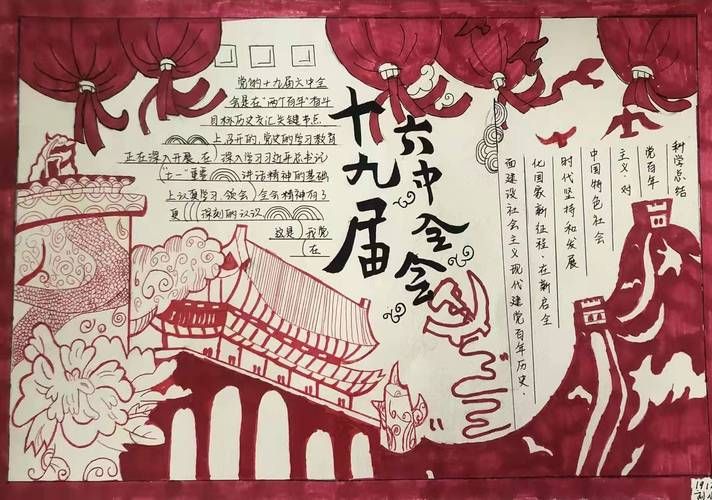 党的十九届六中全
会是在"两个百年"奋斗
目标历史交汇关键节点
上召开的,党史的学习教育
正在深入开展.在深入学习习近平总书记
"七一"重要讲话精神的基础
上认真学习.领会全会精神有了
更深刻的认识
这是我党
在
十九届
六中全会
科学总结
党百年
主义.对
中国特色社会
时代坚持和发展
化国家新征程.在新启全
面建设社会主义现代建党百年历史.